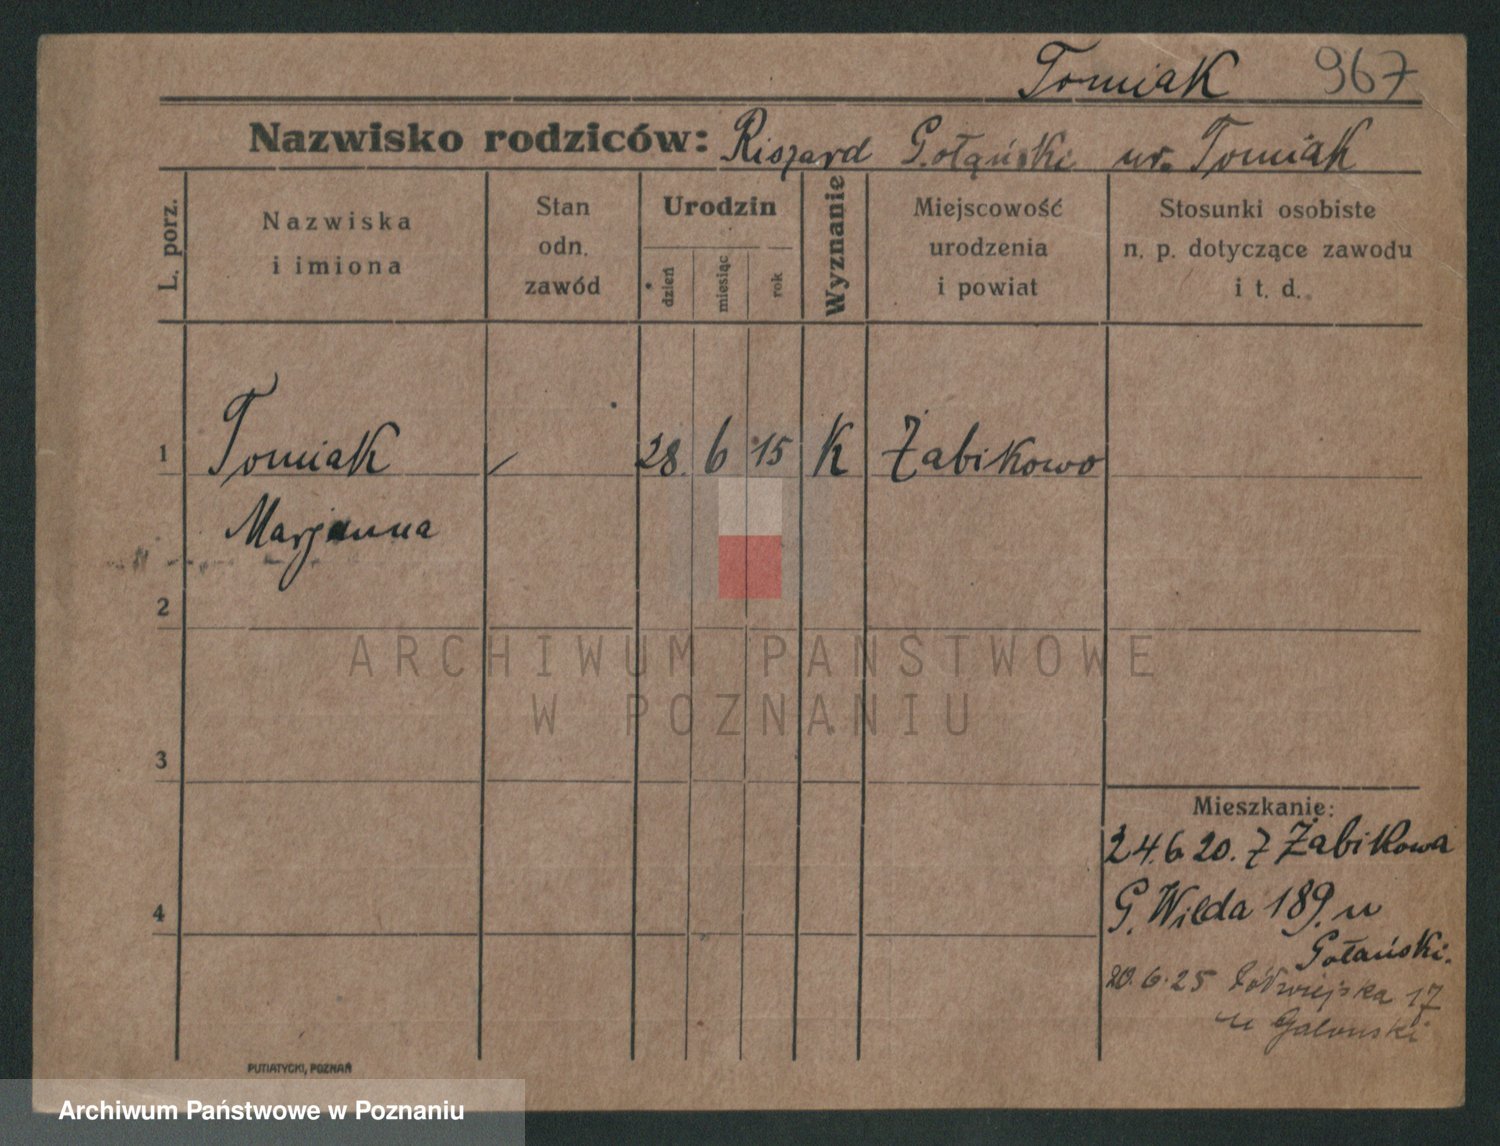 Tomiak 967
Nazwisko rodziców: Riszard Gołański ur. Tomiak
L. porz.
Nazwiska
i imiona
Stan
odn.
zawód
Urodzin
dzień
miesiąc
rok
Wyznanie
Miejscowość
urodzenia
i powiat
Stosunki osobiste
n. p. dotyczące zawodu
i t. d.
1 Tomiak / 28. 6 15 K Żabikowo
Marjanna
2
3
4
Mieszkanie:
24.6.20. Z Żabikowa
G. Wilda 189. u
Gołański.
20.6.25 Półwiejska 17
u Galonski
PUTIATYCKI, POZNAŃ
ARCHIWUM PAŃSTWOWE
W POZNANIU
Archiwum Państwowe w Poznaniu